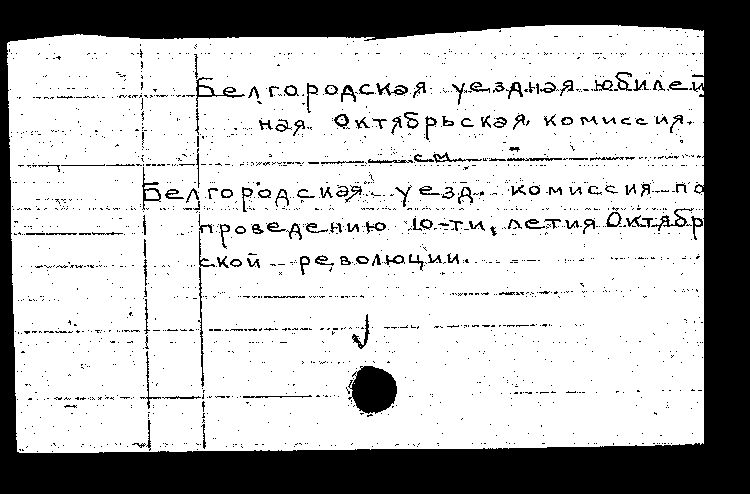 Белгородская уездная юбилей
ная Октябрьская комиссия.
см.
Белгородская уезд. комиссия по
проведению 10-ти, летия Октябр
ской революции.